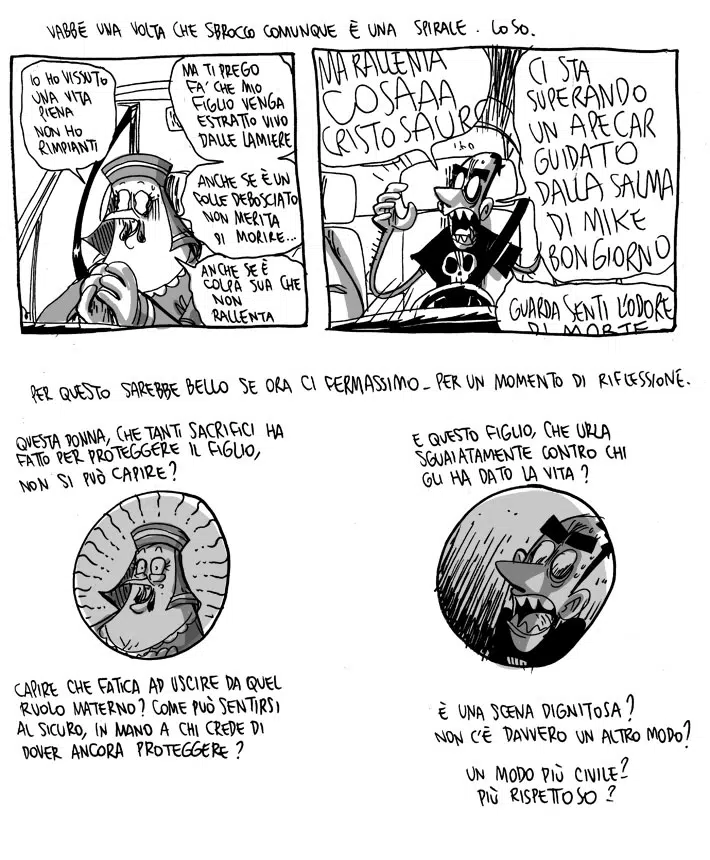 VABBÈ UNA VOLTA CHE SBROCCO COMUNQUE È UNA SPIRALE. LO SO.
IO HO VISSUTO
UNA VITA
PIENA
NON HO
RIMPIANTI
MA TI PREGO
FA' CHE MIO
FIGLIO VENGA
ESTRATTO VIVO
DALLE LAMIERE
ANCHE SE È UN
FOLLE DEBOSCIATO
NON MERITA
DI MORIRE...
ANCHE SE È
COLPA SUA CHE
NON
RALLENTA
MA RALLENTA
COSAAA
CRISTOSAURO
CI STA
SUPERANDO
UN APECAR
GUIDATO
DALLA SALMA
DI MIKE
BONGIORNO
GUARDA SENTI L'ODORE
DI MORTE
PER QUESTO SAREBBE BELLO SE ORA CI FERMASSIMO_ PER UN MOMENTO DI RIFLESSIONE.
QUESTA DONNA, CHE TANTI SACRIFICI HA
FATTO PER PROTEGGERE IL FIGLIO,
NON SI PUÒ CAPIRE?
E QUESTO FIGLIO, CHE URLA
SGUAIATAMENTE CONTRO CHI
GLI HA DATO LA VITA?
CAPIRE CHE FATICA AD USCIRE DA QUEL
RUOLO MATERNO? COME PUÒ SENTIRSI
AL SICURO, IN MANO A CHI CREDE DI
DOVER ANCORA PROTEGGERE?
È UNA SCENA DIGNITOSA?
NON C'È DAVVERO UN ALTRO MODO?
UN MODO PIÙ CIVILE?
PIÙ RISPETTOSO?